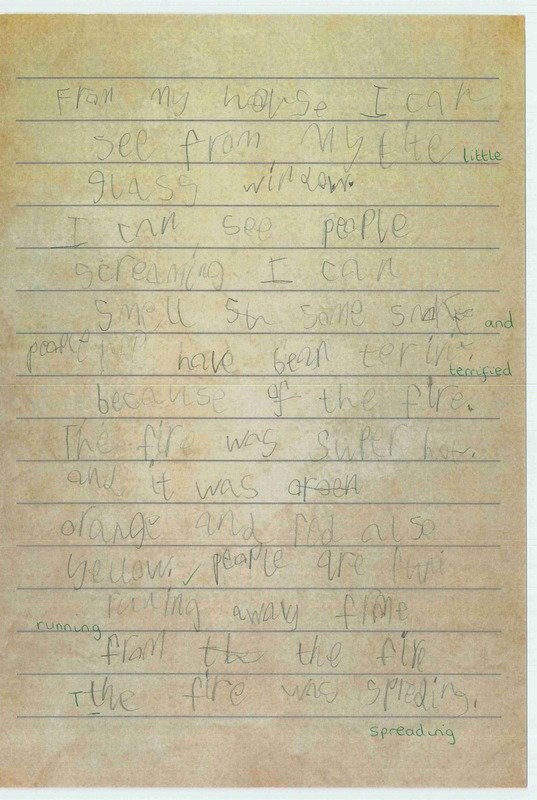 From my house I can
see from my little
little
glass window.
I can see people
screaming I can
smell some smoke
and
people have bean
terrified
because of the fire.
The fire was super hot.
and it was
orange and red also
yellow. people are
runing away
running
from the the fire
Tthe fire was spreding.
spreading